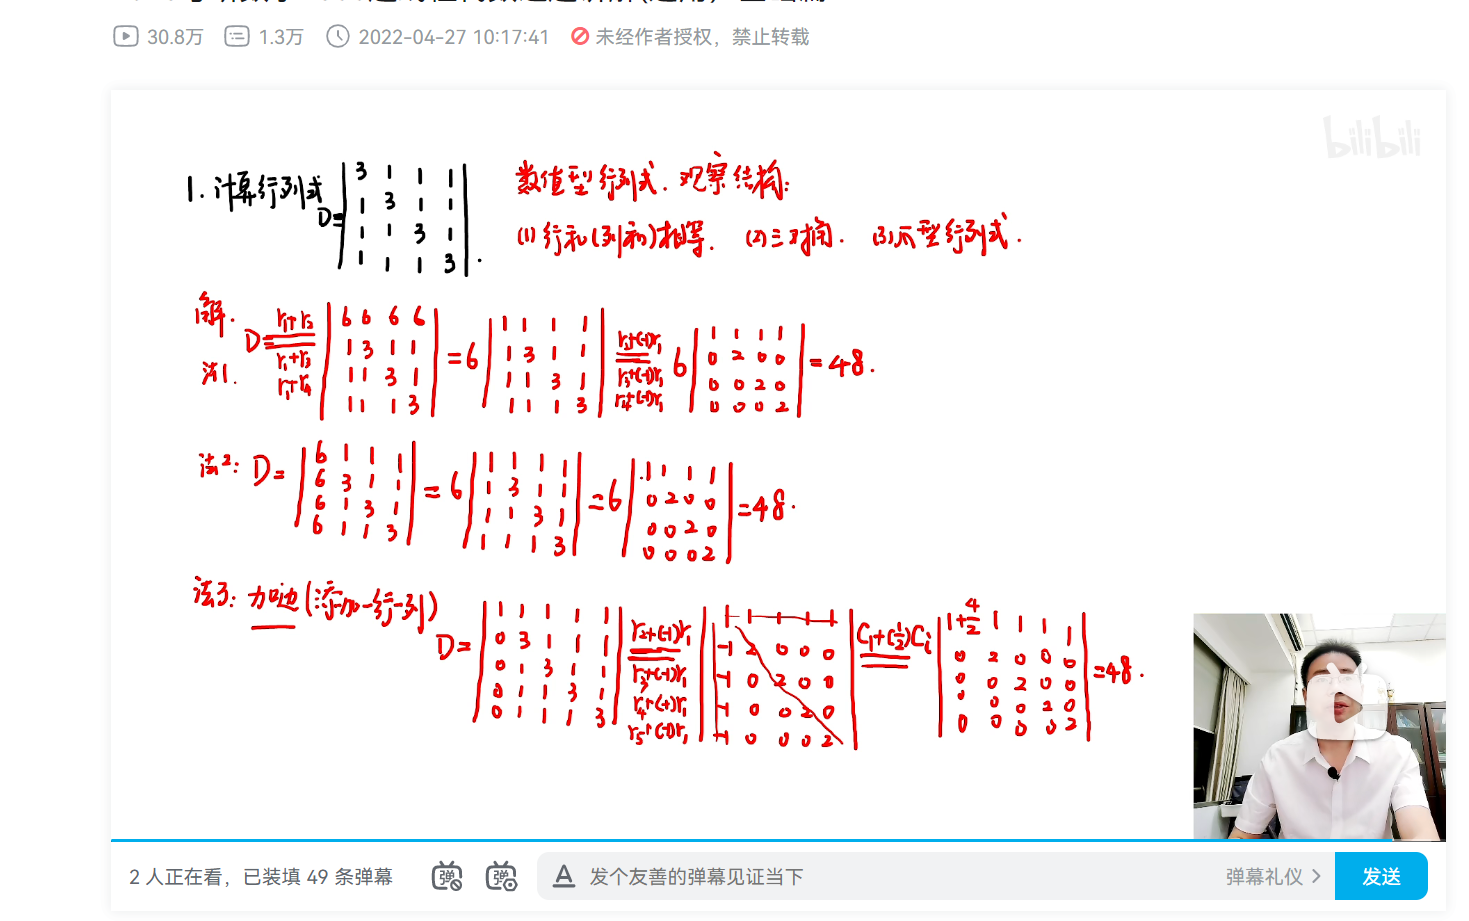 30.8万 1.3万 2022-04-27 10:17:41 未经作者授权，禁止转载
bilibili
1. 计算行列式 D=
3 1 1 1
1 3 1 1
1 1 3 1
1 1 1 3 .
数值型行列式. 观察结构:
(1) 行和(列和)相等. (2) 三对角. (3) 爪型行列式.
解.
法1.
D= r₁+r₂ r₁+r₃ r₁+r₄
6 6 6 6
1 3 1 1
1 1 3 1
1 1 1 3
=6
1 1 1 1
1 3 1 1
1 1 3 1
1 1 1 3
r₂+(-1)r₁ r₃+(-1)r₁ r₄+(-1)r₁
6
1 1 1 1
0 2 0 0
0 0 2 0
0 0 0 2
=48.
法2: D=
6 1 1 1
6 3 1 1
6 1 3 1
6 1 1 3
=6
1 1 1 1
1 3 1 1
1 1 3 1
1 1 1 3
=6
1 1 1 1
0 2 0 0
0 0 2 0
0 0 0 2
=48.
法3: 加边(添加一行一列)
D=
1 1 1 1 1
0 3 1 1 1
0 1 3 1 1
0 1 1 3 1
0 1 1 1 3
r₂+(-1)r₁
r₃+(-1)r₁
r₄+(-1)r₁
r₅+(-1)r₁
1 1 1 1 1
-1 2 0 0 0
-1 0 2 0 0
-1 0 0 2 0
-1 0 0 0 2
C₁+(½)Cᵢ
1+4/2 1 1 1 1
0 2 0 0 0
0 0 2 0 0
0 0 0 2 0
0 0 0 0 2
=48.
2 人正在看，已装填 49 条弹幕 弹 弹 A 发个友善的弹幕见证当下 弹幕礼仪 > 发送